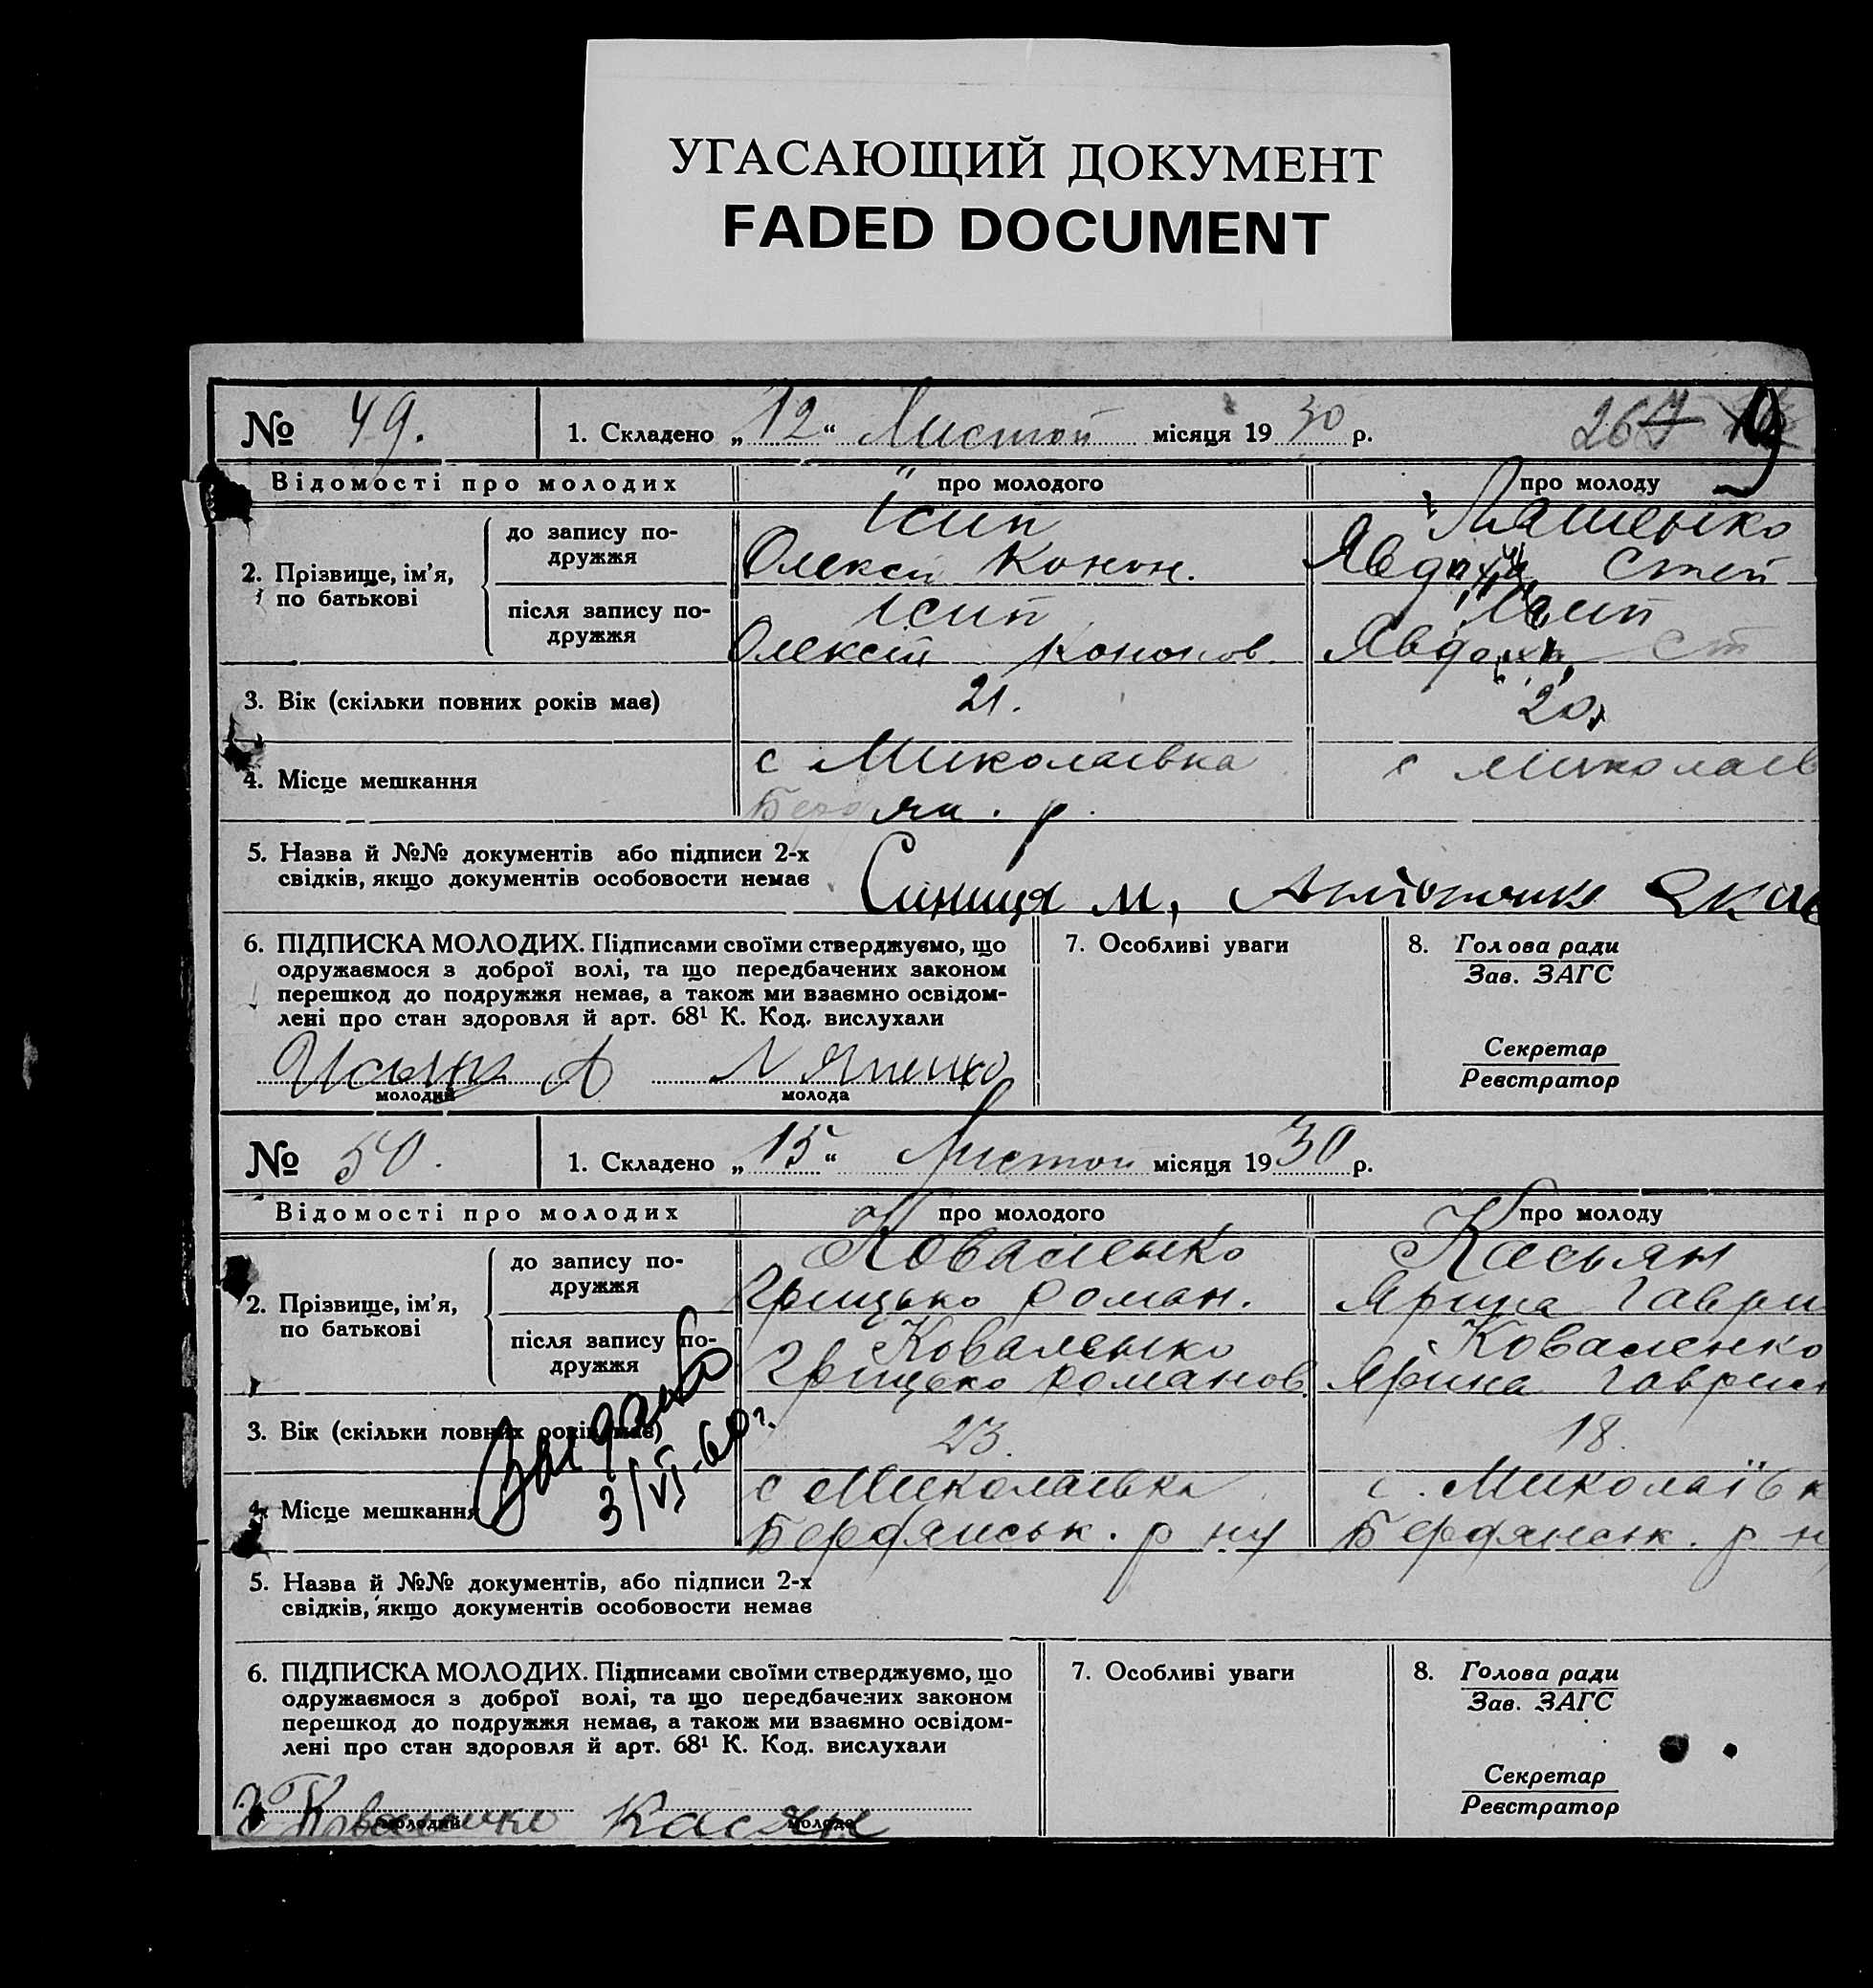 УГАСАЮЩИЙ ДОКУМЕНТ
FADED DOCUMENT
№ 49. 1. Складено „12“ Листоп місяця 1930 р. 267
Відомості про молодих про молодого про молоду
2. Прізвище, ім’я, по батькові
до запису подружжя
Ісип
Олексій Конон.
Ляшенко
Явдоха Степ
після запису подружжя
Ісип
Олексій Кононов.
Ісип
Явдоха Ст
3. Вік (скільки повних років має) 21. 20
4. Місце мешкання
с Миколаївка
Бердян. р.
с Миколаїв
5. Назва й №№ документів або підписи 2-х
свідків, якщо документів особовости немає
Синиця М,
6. ПІДПИСКА МОЛОДИХ. Підписами своїми стверджуємо, що
одружаємося з доброї волі, та що передбачених законом
перешкод до подружжя немає, а також ми взаємно освідом-
лені про стан здоровля й арт. 68¹ К. Код. вислухали
7. Особливі уваги
8. Голова ради
Зав. ЗАГС
Секретар
Реєстратор
молодий молода
№ 50. 1. Складено „15“ Листоп місяця 1930 р.
Відомості про молодих про молодого про молоду
2. Прізвище, ім’я, по батькові
до запису подружжя
Коваленко
Грицько Роман.
Касьян
Ярина Гаври
після запису подружжя
Коваленко
Грицько Романов.
Коваленко
Ярина Гаврил
3. Вік (скільки повних років має) 23. 18.
3/VI-60г.
4. Місце мешкання
с Миколаївка
Бердянськ. р ну
с. Миколаївк
Бердянськ. р н
5. Назва й №№ документів, або підписи 2-х
свідків, якщо документів особовости немає
6. ПІДПИСКА МОЛОДИХ. Підписами своїми стверджуємо, що
одружаємося з доброї волі, та що передбачених законом
перешкод до подружжя немає, а також ми взаємно освідом-
лені про стан здоровля й арт. 68¹ К. Код. вислухали
7. Особливі уваги
8. Голова ради
Зав. ЗАГС
Секретар
Реєстратор
Г Коваленко Касян
молодий молода